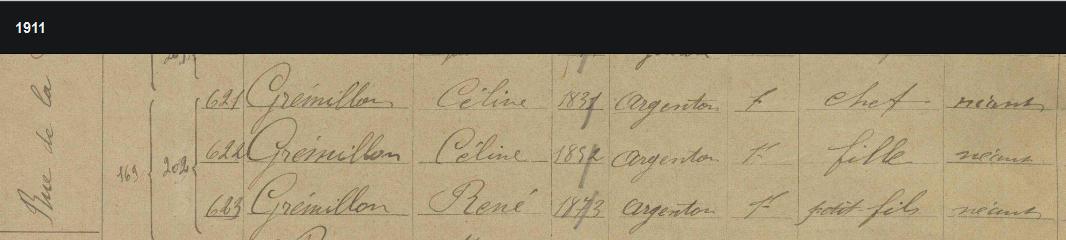 1911
Rue de la
621 Grémillon Céline 1837 Argenton F chef néant
169 202 622 Grémillon Céline 1892 Argenton F fille néant
623 Grémillon René 1873 Argenton F petit-fils néant